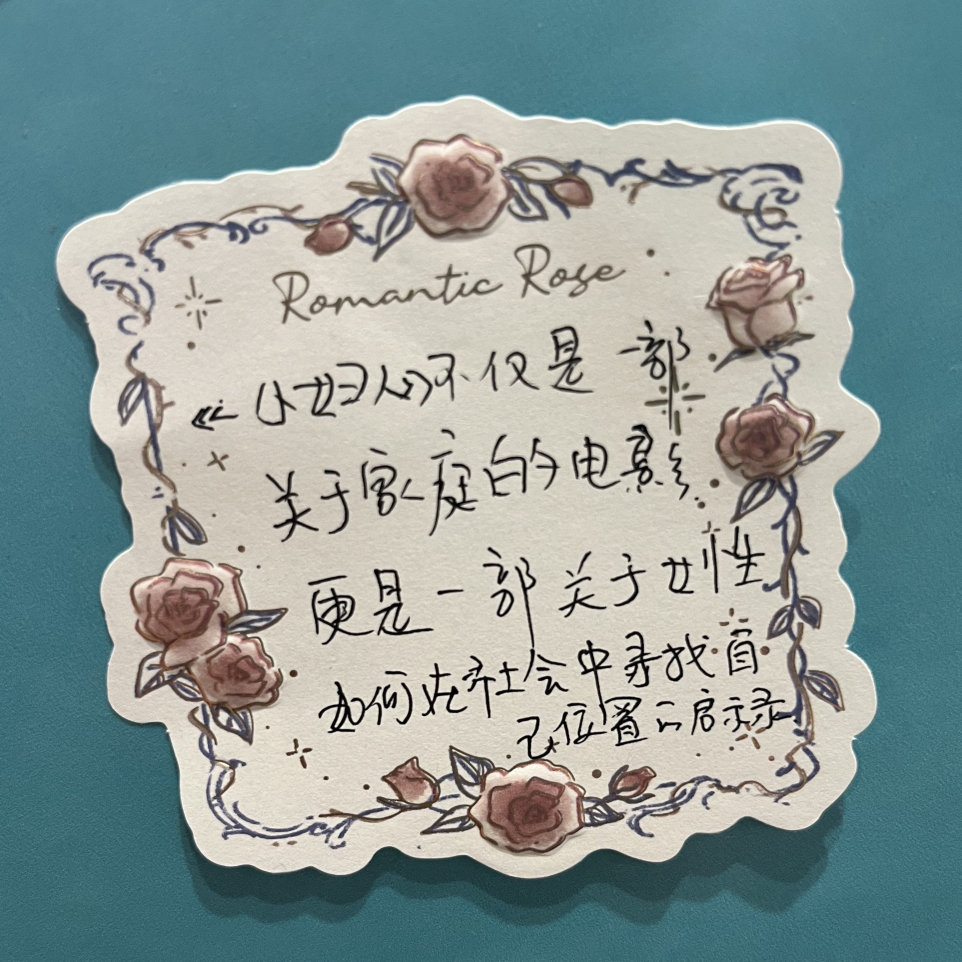 Romantic Rose
《小妇人》不仅是一部
关于家庭的电影
更是一部关于女性
如何在社会中寻找自
己位置的启示录